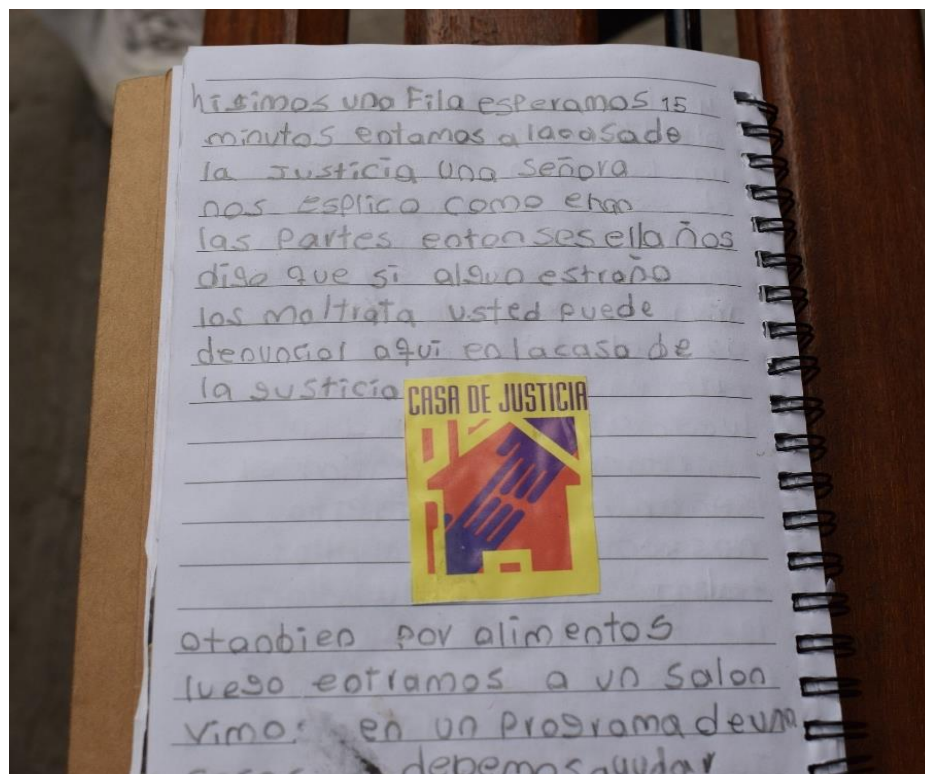 hisimos una Fila esperamos 15
minutos entamos a lacasade
la Justicia una señora
nos esplico como eran
las partes entonses ella ños
digo que si algun estraño
los maltrata usted puede
denunciar aqui en lacasa de
la gusticia
CASA DE JUSTICIA
otanbien por alimentos
luego entramos a un salon
vimo: en un programa deuna
debemos ayudar